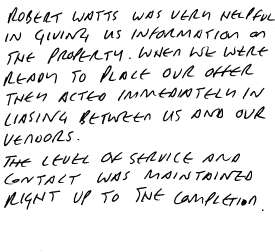 ROBERT WATTS WAS VERY HELPFUL
IN GIVING US INFORMATION ON
THE PROPERTY. WHEN WE WERE
READY TO PLACE OUR OFFER
THEY ACTED IMMEDIATELY IN
LIASING BETWEEN US AND OUR
VENDORS.
THE LEVEL OF SERVICE AND
CONTACT WAS MAINTAINED
RIGHT UP TO THE COMPLETION.